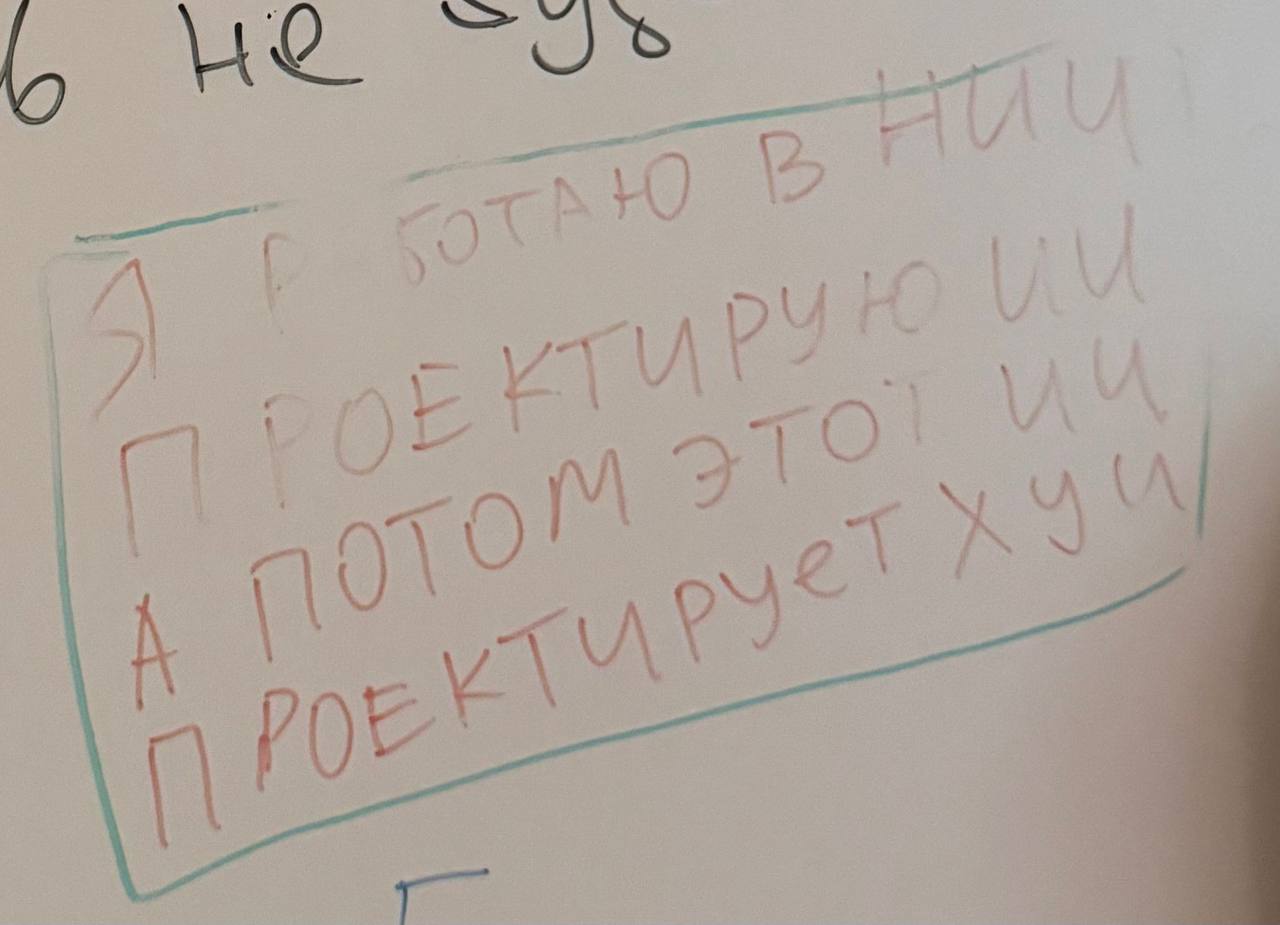 не
Я Р БОТАЮ В НИИ
ПРОЕКТИРУЮ ИИ
А ПОТОМ ЭТОТ ИИ
ПРОЕКТИРУеТ ХУИ